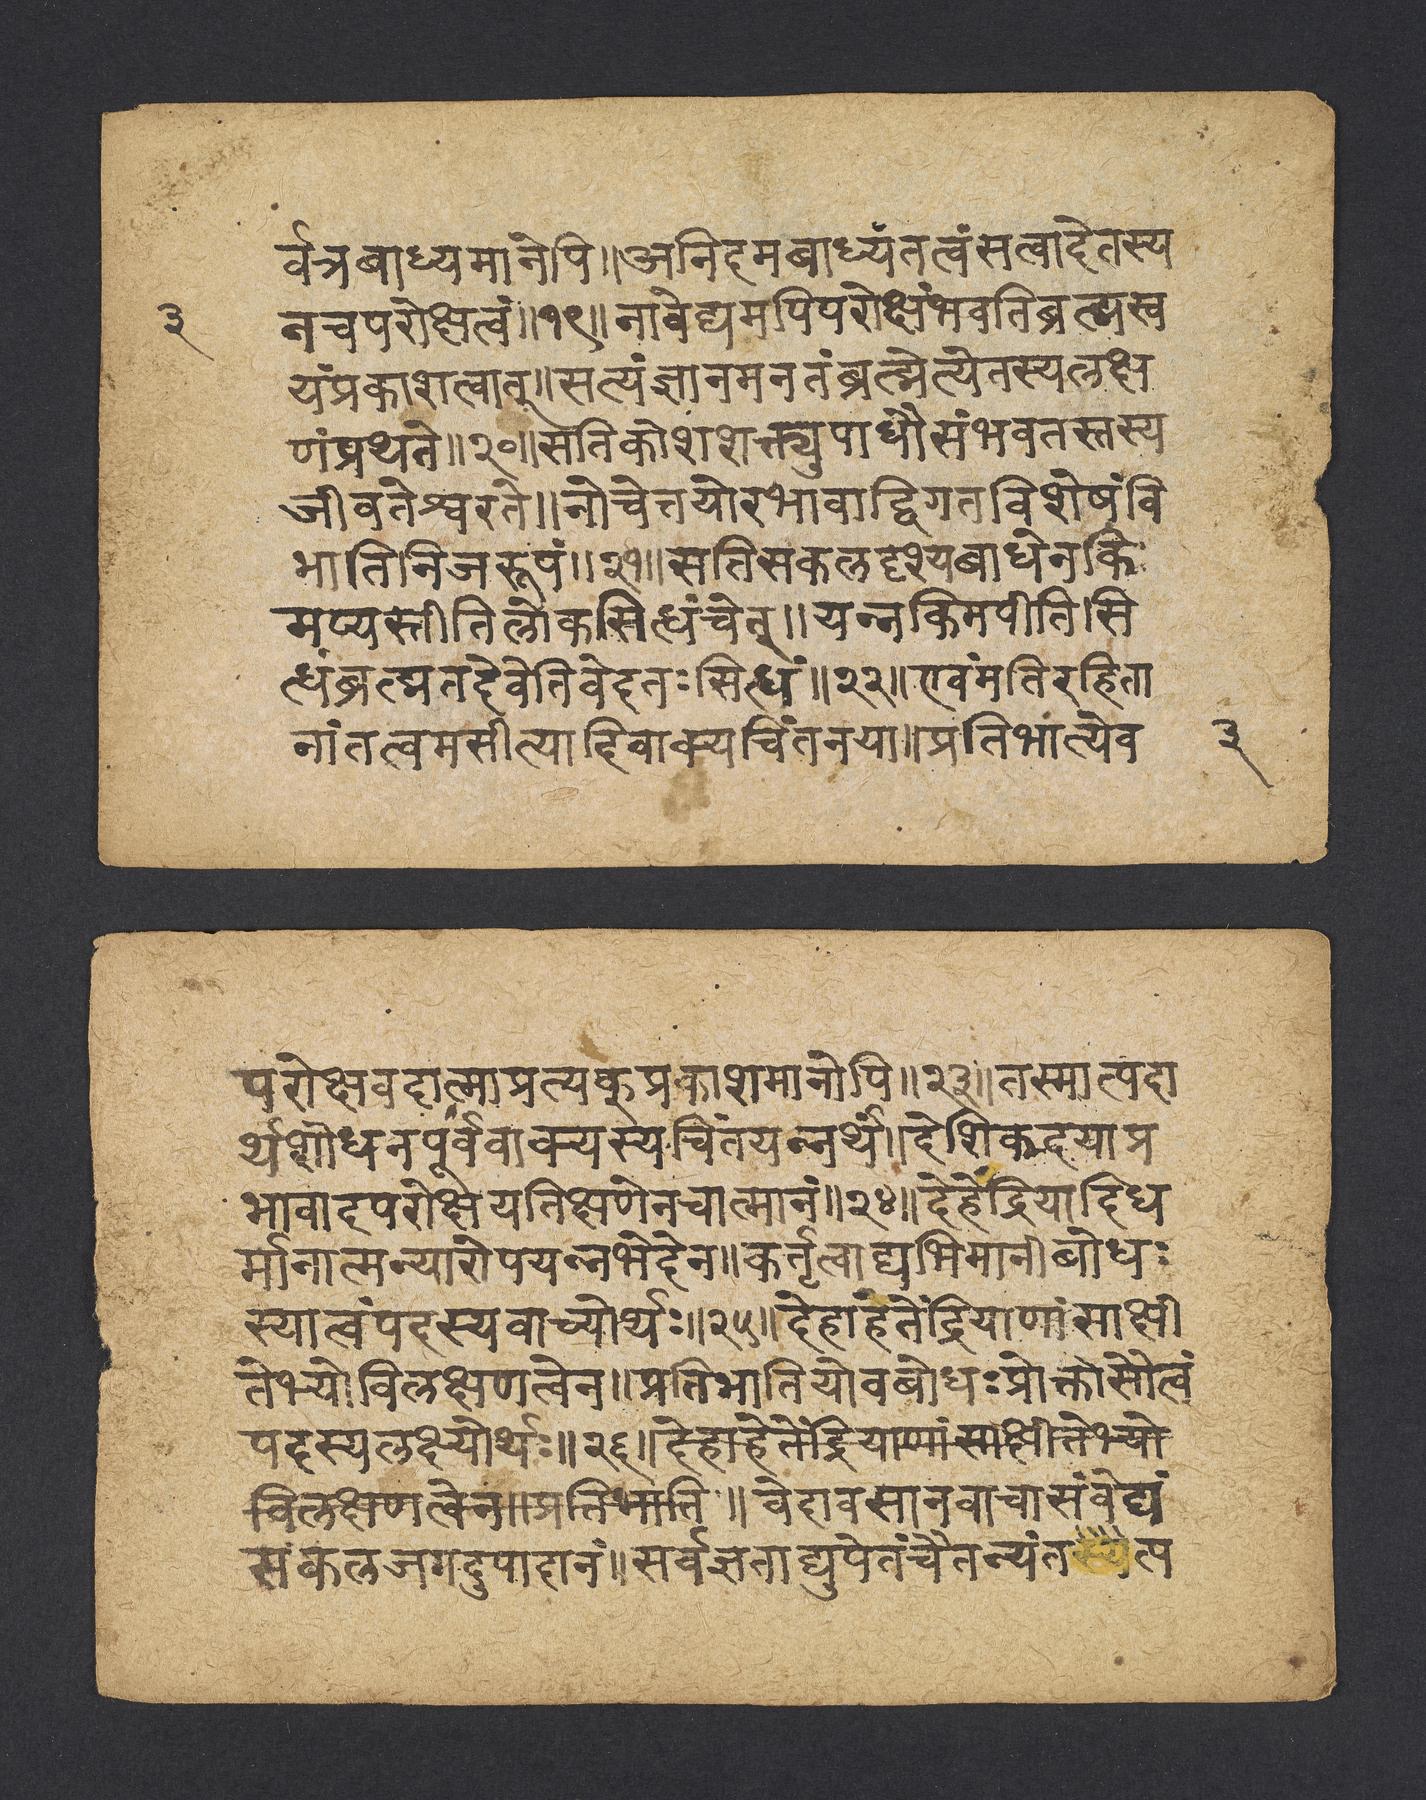 र्वत्रबाध्यमानेपि॥अनिदमबाध्यंतत्वंसत्वादेतस्य
३
नचपरोक्षत्वं॥१९॥नावेद्यमपिपरोक्षंभवतिब्रह्मस्व
यंप्रकाशत्वात्॥सत्यंज्ञानमनतंब्रह्मेत्येतस्यलक्ष
णंप्रथते॥२०॥सतिकोशशक्त्युपाधौसंभवतस्तस्य
जीवतेश्वरते॥नोचेत्तयोरभावाद्विगतविशेषंवि
भातिनिजरूपं॥२१॥सतिसकलदृश्यबाधेनकि
मप्यस्तीतिलोकसिद्धंचेत्॥यन्नकिमपीतिसि
द्धंब्रह्मतदेवेतिवेदतःसिद्धं॥२२॥एवंमतिरहिता
नांतत्वमसीत्यादिवाक्यचिंतनया॥प्रतिभात्येव
३
परोक्षवदात्माप्रत्यक्प्रकाशमानोपि॥२३॥तस्मात्पदा
र्थशोधनपूर्वंवाक्यस्यचिंतयन्नर्थं॥देशिकदयाप्र
भावादपरोक्षयतिक्षणेनचात्मानं॥२४॥देहेंद्रियादिध
र्मानात्मन्यारोपयन्नभेदेन॥कर्तृत्वाद्यभिमानीबोधः
स्यात्त्वंपदस्यवाच्योर्थः॥२५॥देहाहंतेंद्रियाणांसाक्षी
तेभ्योविलक्षणत्वेन॥प्रतिभातियोवबोधःप्रोक्तोसौत्वं
पदस्यलक्ष्योर्थः॥२६॥देहाहेतेंद्रियाणांसाक्षीतेभ्यो
विलक्षणत्वेन॥प्रतिभाति॥वेदावसानवाचासंवेद्यं
सकलजगदुपादानं॥सर्वज्ञताद्युपेतंचैतन्यंतत्प